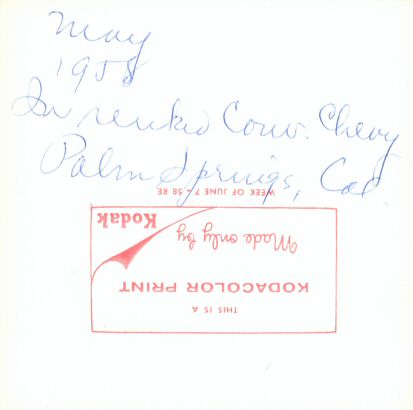 May
1958
In rented Conv. Chevy
Palm Springs, Cal.
WEEK OF JUNE 7 - 58 RE
THIS IS A
KODACOLOR PRINT
Made only by
Kodak